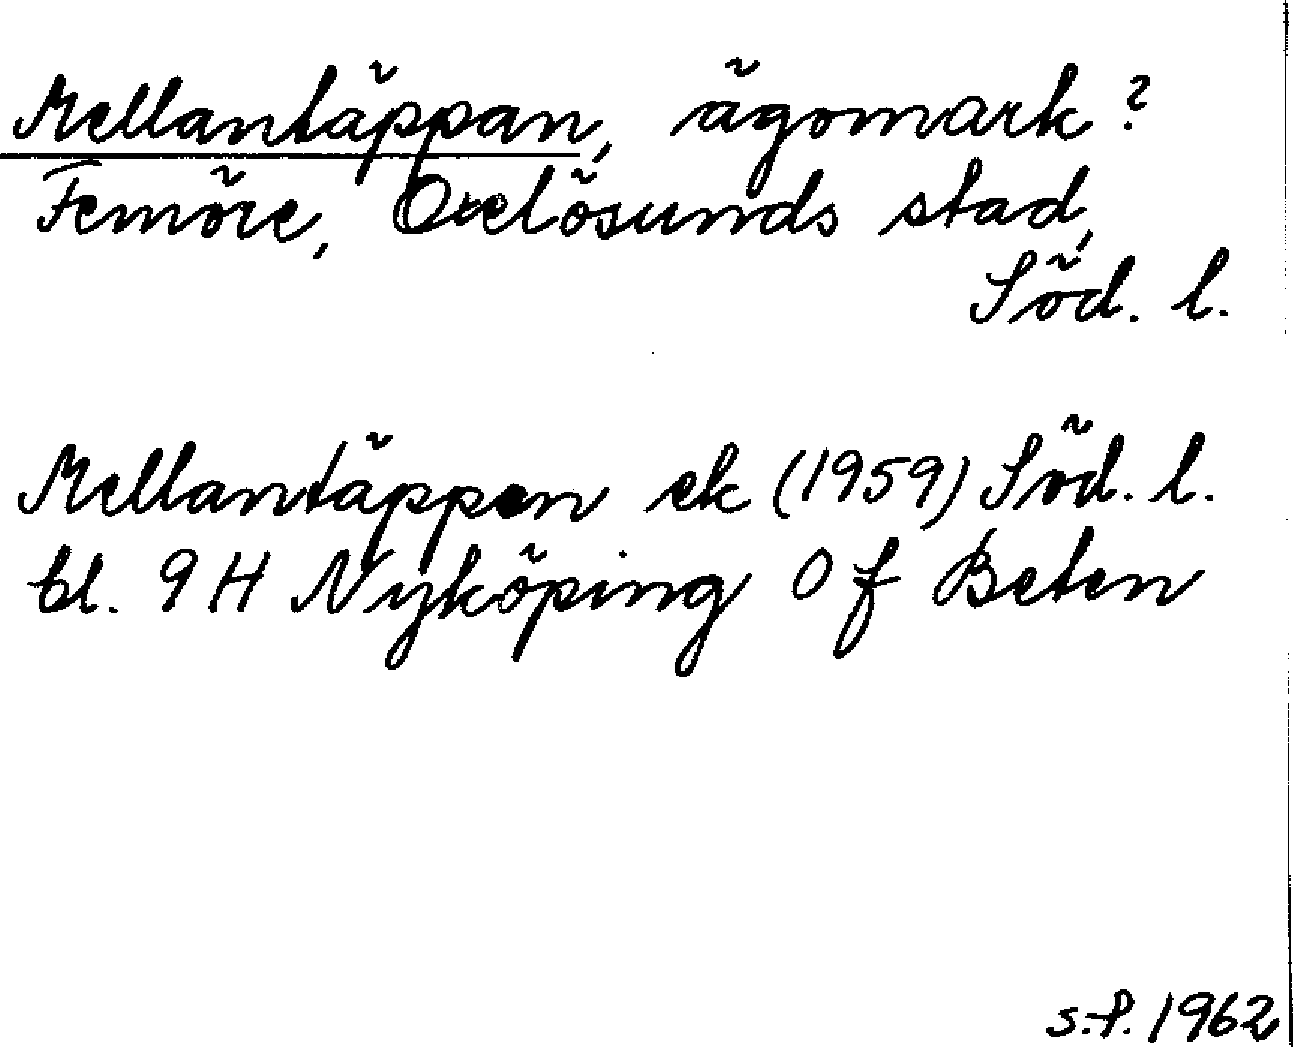 Mellantäppan, ägomark?
Femöre, Oxelösunds stad,
Söd. l.
Mellantäppan ek (1959) Söd. l.
bl. 9 H Nyköping 0 f Beten
s.f. 1962